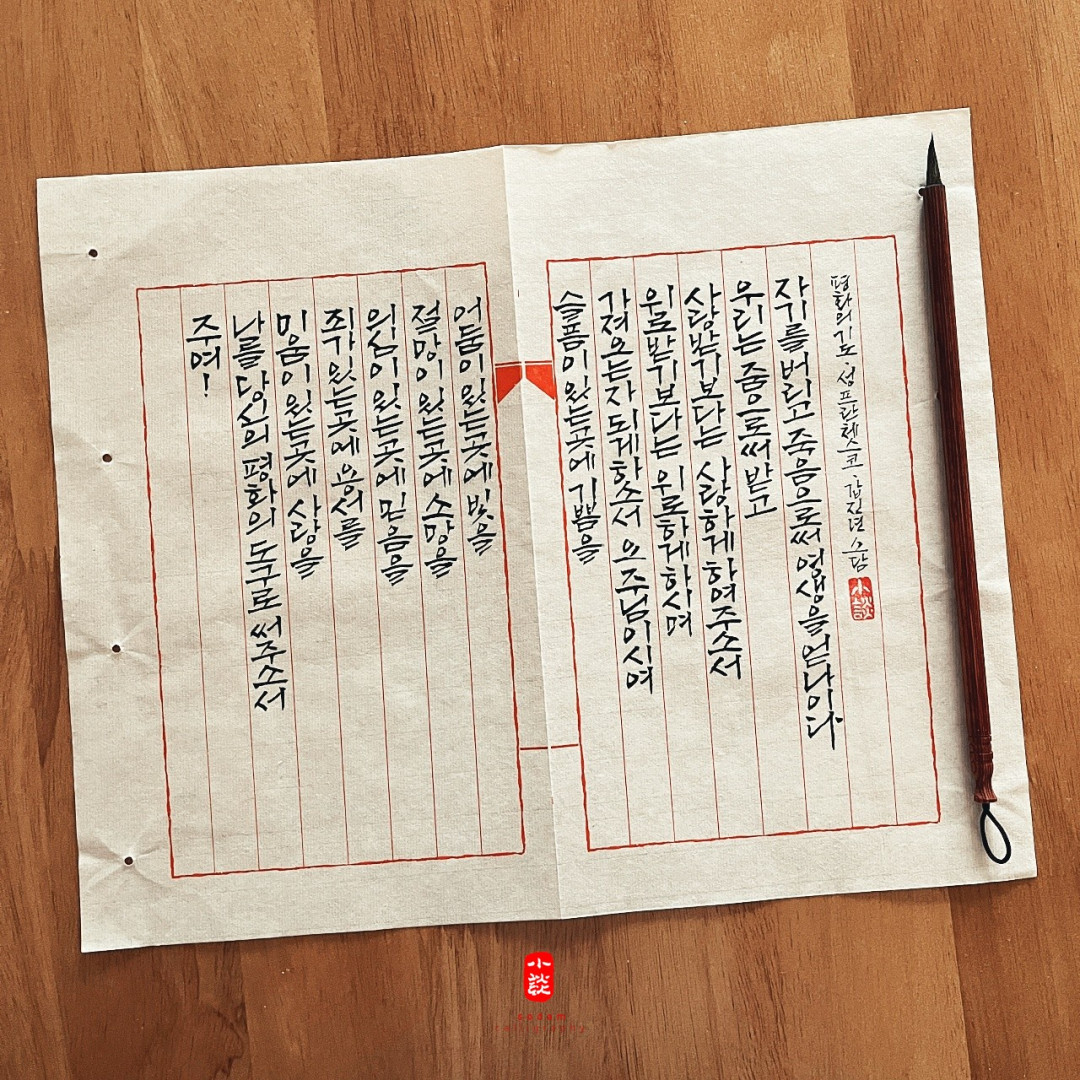 주여!
나를 당신의 평화의 도구로 써주소서
미움이 있는곳에 사랑을
죄가 있는곳에 용서를
의심이 있는곳에 믿음을
절망이 있는곳에 소망을
어둠이 있는곳에 빛을
슬픔이 있는곳에 기쁨을
가져오는자 되게하소서 오 주님이시여
위로받기보다는 위로하게하시며
사랑받기보다는 사랑하게 하여주소서
우리는 줌으로써 받고
자기를 버리고 죽음으로써 영생을 얻나이다
평화의기도. 성프란체스코 갑진년 소담
小談
小談
sodam
calligraphy